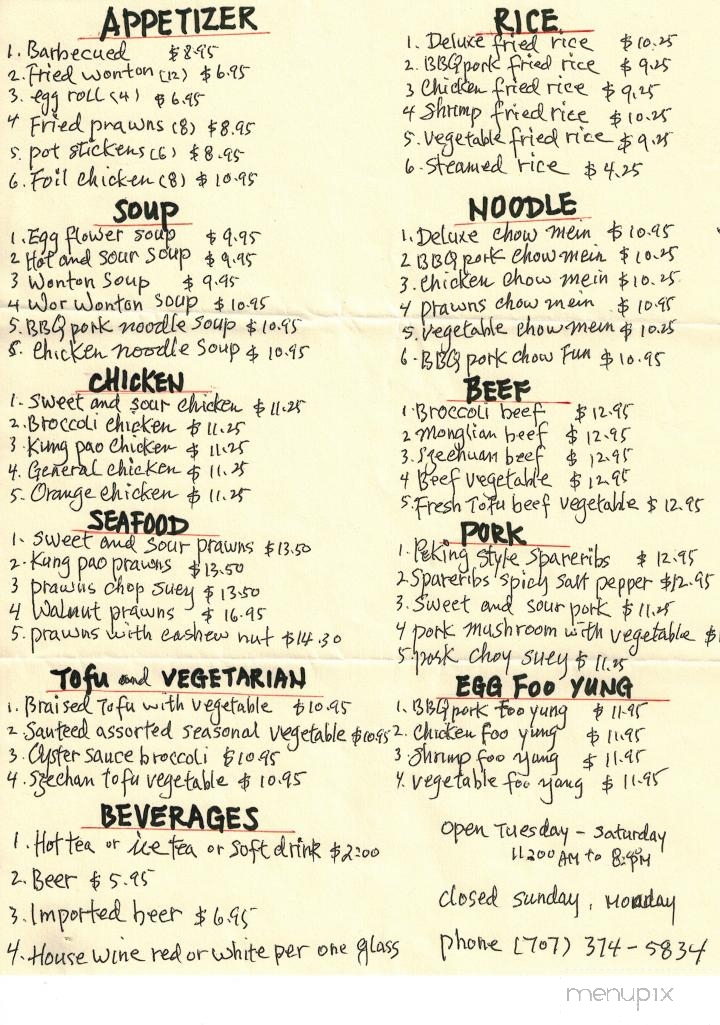 APPETIZER
1. Barbecued $8.95
2. Fried wonton (12) $6.95
3. egg roll (4) $6.95
4 Fried prawns (8) $8.95
5. pot stickens (6) $8.95
6. Foil chicken (8) $10.95
SOUP
1. Egg flower soup $9.95
2 Hot and sour soup $9.95
3 Wonton Soup $9.95
4 Wor Wonton Soup $10.95
5. BBQ pork noodle Soup $10.95
6. Chicken noodle Soup $10.95
CHICKEN
1. Sweet and sour chicken $11.25
2. Broccoli chicken $11.25
3 Kung pao chicken $11.25
4. General chicken $11.25
5. Orange chicken $11.25
SEAFOOD
1. Sweet and sour prawns $13.50
2. Kung pao prawns $13.50
3 prawns chop suey $13.50
4 Walnut prawns $16.95
5. prawns with cashew nut $14.30
Tofu and VEGETARIAN
1. Braised Tofu with vegetable $10.95
2 Sauteed assorted seasonal vegetable $10.95
3. Oyster sauce broccoli $10.95
4. Szechan tofu vegetable $10.95
BEVERAGES
1. Hot tea or ice tea or soft drink $2.00
2. Beer $5.95
3. Imported beer $6.95
4. House wine red or white per one glass
RICE
1. Deluxe fried rice $10.25
2. BBQ pork fried rice $9.25
3 Chicken fried rice $9.25
4 Shrimp fried rice $10.25
5. vegetable fried rice $9.25
6. Steamed rice $4.25
NOODLE
1. Deluxe chow mein $10.95
2 BBQ pork chow mein $10.25
3. chicken chow mein $10.25
4 prawns chow mein $10.95
5. vegetable chow mein $10.25
6. BBQ pork chow Fun $10.95
BEEF
1 Broccoli beef $12.95
2 Monglian beef $12.95
3. Szechuan beef $12.95
4 Beef vegetable $12.95
5. Fresh Tofu beef vegetable $12.95
PORK
1. Peking Style Spareribs $12.95
2 Spareribs spicy salt pepper $12.95
3. Sweet and sour pork $11.25
4 pork mushroom with vegetable $1
5. pork choy suey $11.25
EGG Foo YUNG
1. BBQ pork foo yung $11.95
2. Chicken foo yung $11.95
3 Shrimp foo yung $11.95
4. vegetable foo yang $11.95
open Tuesday - Saturday
AM to PM
closed sunday, Monday
phone (707) 374-5834
menupix